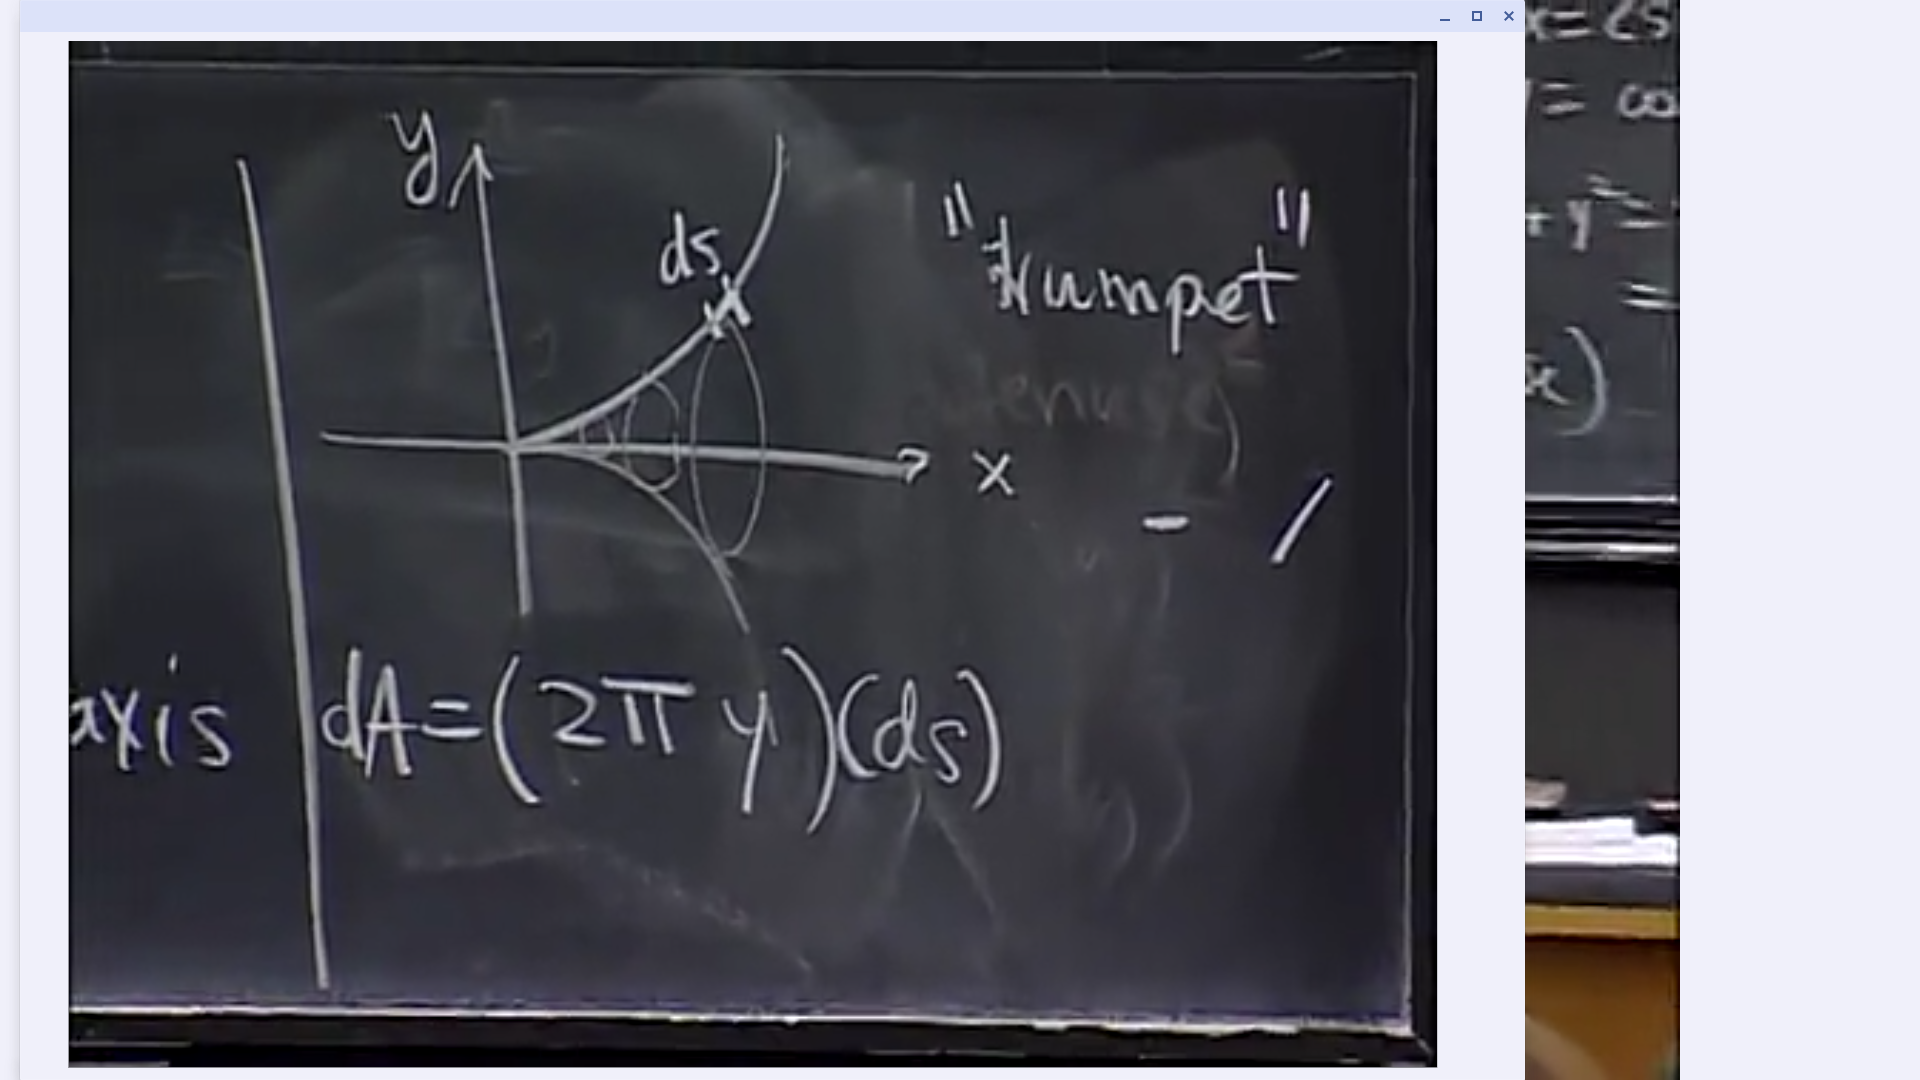 y
ds
"trumpet"
x
axis
dA=(2π y)(ds)
x=2s
y= co
+ y²=
=
x)